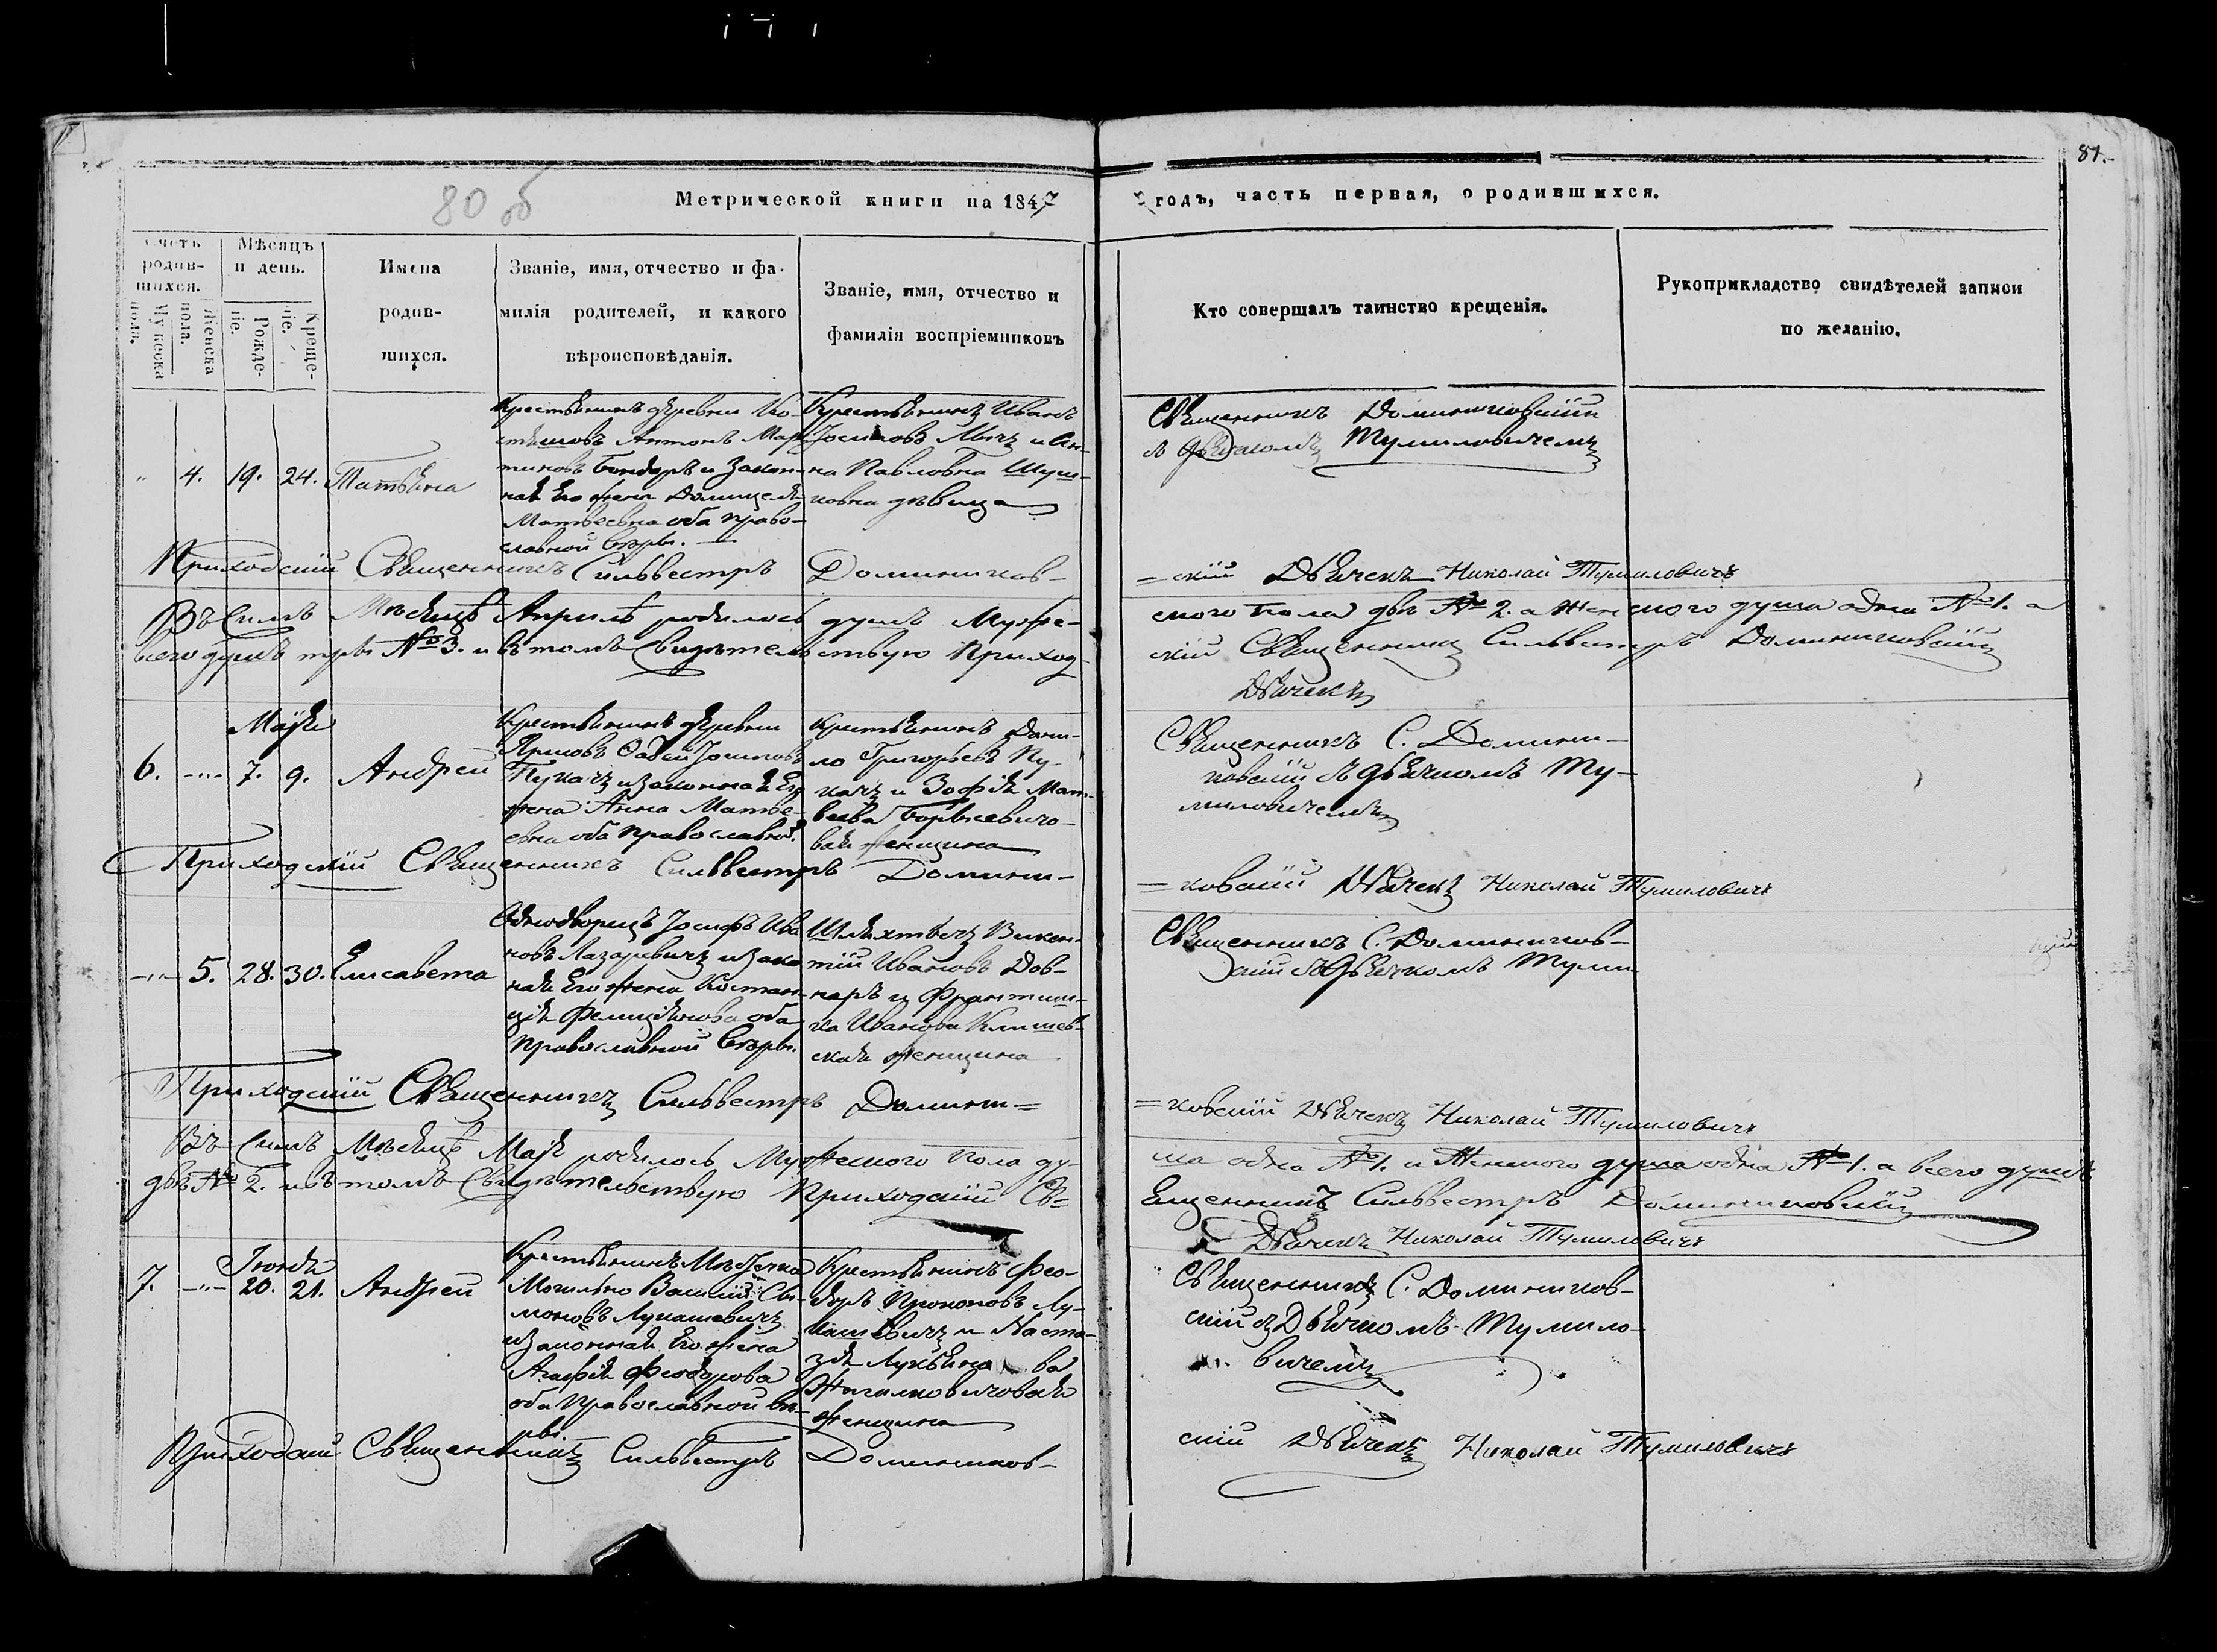 81.
80 об
Метрической книги на 1847
годъ, часть первая, о родившихся.
Счетъ родив-
шихся.
Мужеска пола.
Женска пола.
Мѣсяцъ
и день.
Рожде-
ніе.
Креще-
ніе.
Имена
родив-
шихся.
Званіе, имя, отчество и фа-
милія родителей, и какого
вѣроисповѣданія.
Званіе, имя, отчество и
фамилія воспріемниковъ
Кто совершалъ таинство крещенія.
Рукоприкладство свидѣтелей записи
по желанію.
4. 19. 24. Татьяна
Крестьянинъ деревни
Антонъ Мар-
тиновъ Бондарь и закон-
ная Его жена
Матвеевна оба право-
славной вѣры.
Крестьянинъ Иванъ
Іосифовъ и Ан-
на Павловна
девица
Священникъ Доминиковскій
съ дьячкомъ Тумиловичемъ
Приходскій Священникъ Сильвестръ Домиников-
=скій Дьячекъ Николай Тумиловичъ
Въ Семъ Мѣсяцѣ Апрѣлѣ родилось душъ Муже-
ского пола двѣ № 2. а Женского душа одна № 1. а
всего душъ три № 3. и въ томъ Свидѣтельствую Приход-
скій Священникъ Сильвестръ Доминиковскій
Дьячекъ
Майя
6. -"- 7. 9. Андрей
Крестьянинъ деревни
Іосифовъ
Пукачъ и законная Его
жена Анна Матве-
евна оба православной.
Крестьянинъ Дани-
ло Григорьевъ Пу-
качъ и Зофія Мат-
веева
женщина
Священникъ С. Домини-
ковскій съ дьячкомъ Ту-
миловичемъ
Приходскій Священникъ Сильвестръ Домини-
=ковскій Дьячекъ Николай Тумиловичъ
-"- 5. 28. 30. Елисавета
Однодворецъ Іосифъ Ива-
новъ Лазаревичъ и зако-
ная Его жена Констан-
ція оба
Православной вѣры.
Шляхтичъ Викен-
тій Ивановъ Дов-
наръ и Францишка
Иванова
женщина
Священникъ С. Домиников-
скій съ Дьячкомъ Туми
Приходскій Священникъ Сильвестръ Домини=
=ковскій Дьячекъ Николай Тумиловичъ
Въ Семъ Мѣсяцѣ Маѣ родилось Мужеского пола ду-
ша одна № 1. и Женского душа одна № 1. а всего душъ
двѣ № 2. и въ томъ Свидѣтельствую Приходскій Св=
ященникъ Сильвестръ Доминиковскій
Дьячекъ Николай Тумиловичъ
Іюня
7. -"- 20. 21. Андрей
Крестьянинъ Мѣстечка
Могильно Василій Си-
моновъ Лукашевичъ
и законная Его жена
Агафія Феодорова
оба Православной вѣ-
ры
Крестьянинъ Фео-
доръ Прокоповъ Лу-
кашевичъ и Наста-
зія
женщина
Священникъ С. Домиников-
скій съ Дьячкомъ Тумило-
вичемъ
Приходскій Священникъ Сильвестръ Домиников-
скій Дьячекъ Николай Тумиловичъ